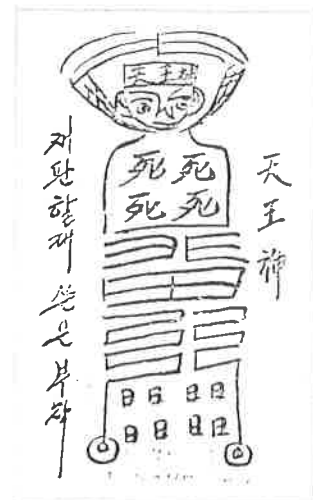 天王神
死死
死死
日日 日日
日日 日日
天王神
재판할때 쓰는 부작